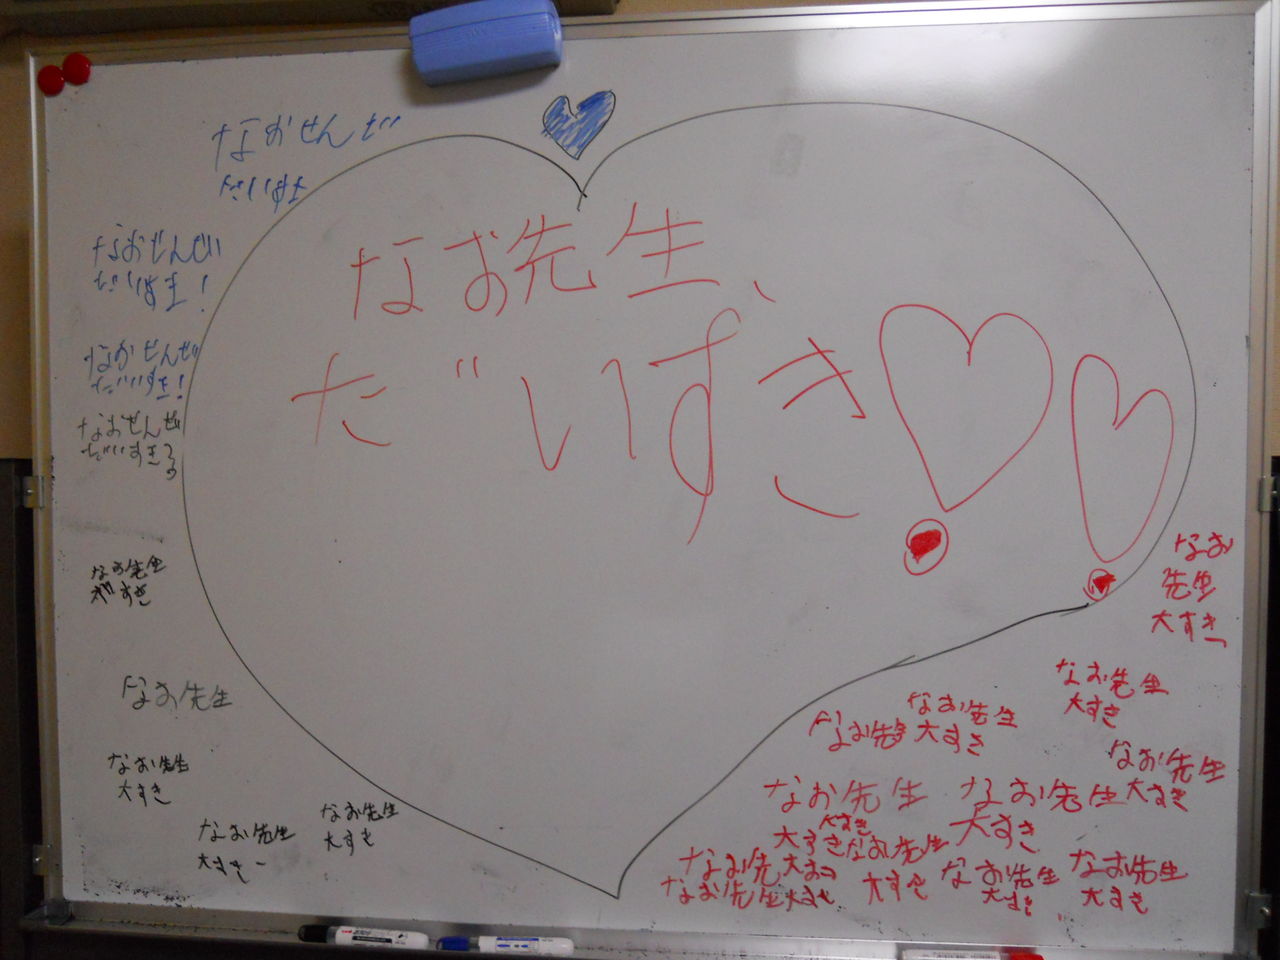 なお先生、
だいすき
なおせんせい
だいすき
なおせんせい
だいすき!
なおせんせい
だいすき!
なおせんせい
だいすき
なお先生
すき
なお先生
なお先生
大すき
なお先生
大すき
なお先生
大すき
なお
先生
大すき
なお先生
大すき
なお先生
大すき
なお先生
なお先生
大すき
なお先生
大すき
なお先生
大すき
大すき
なお先生
大すき
なお先
なお先生大すき
なお先生
大すき
なお先生
大すき